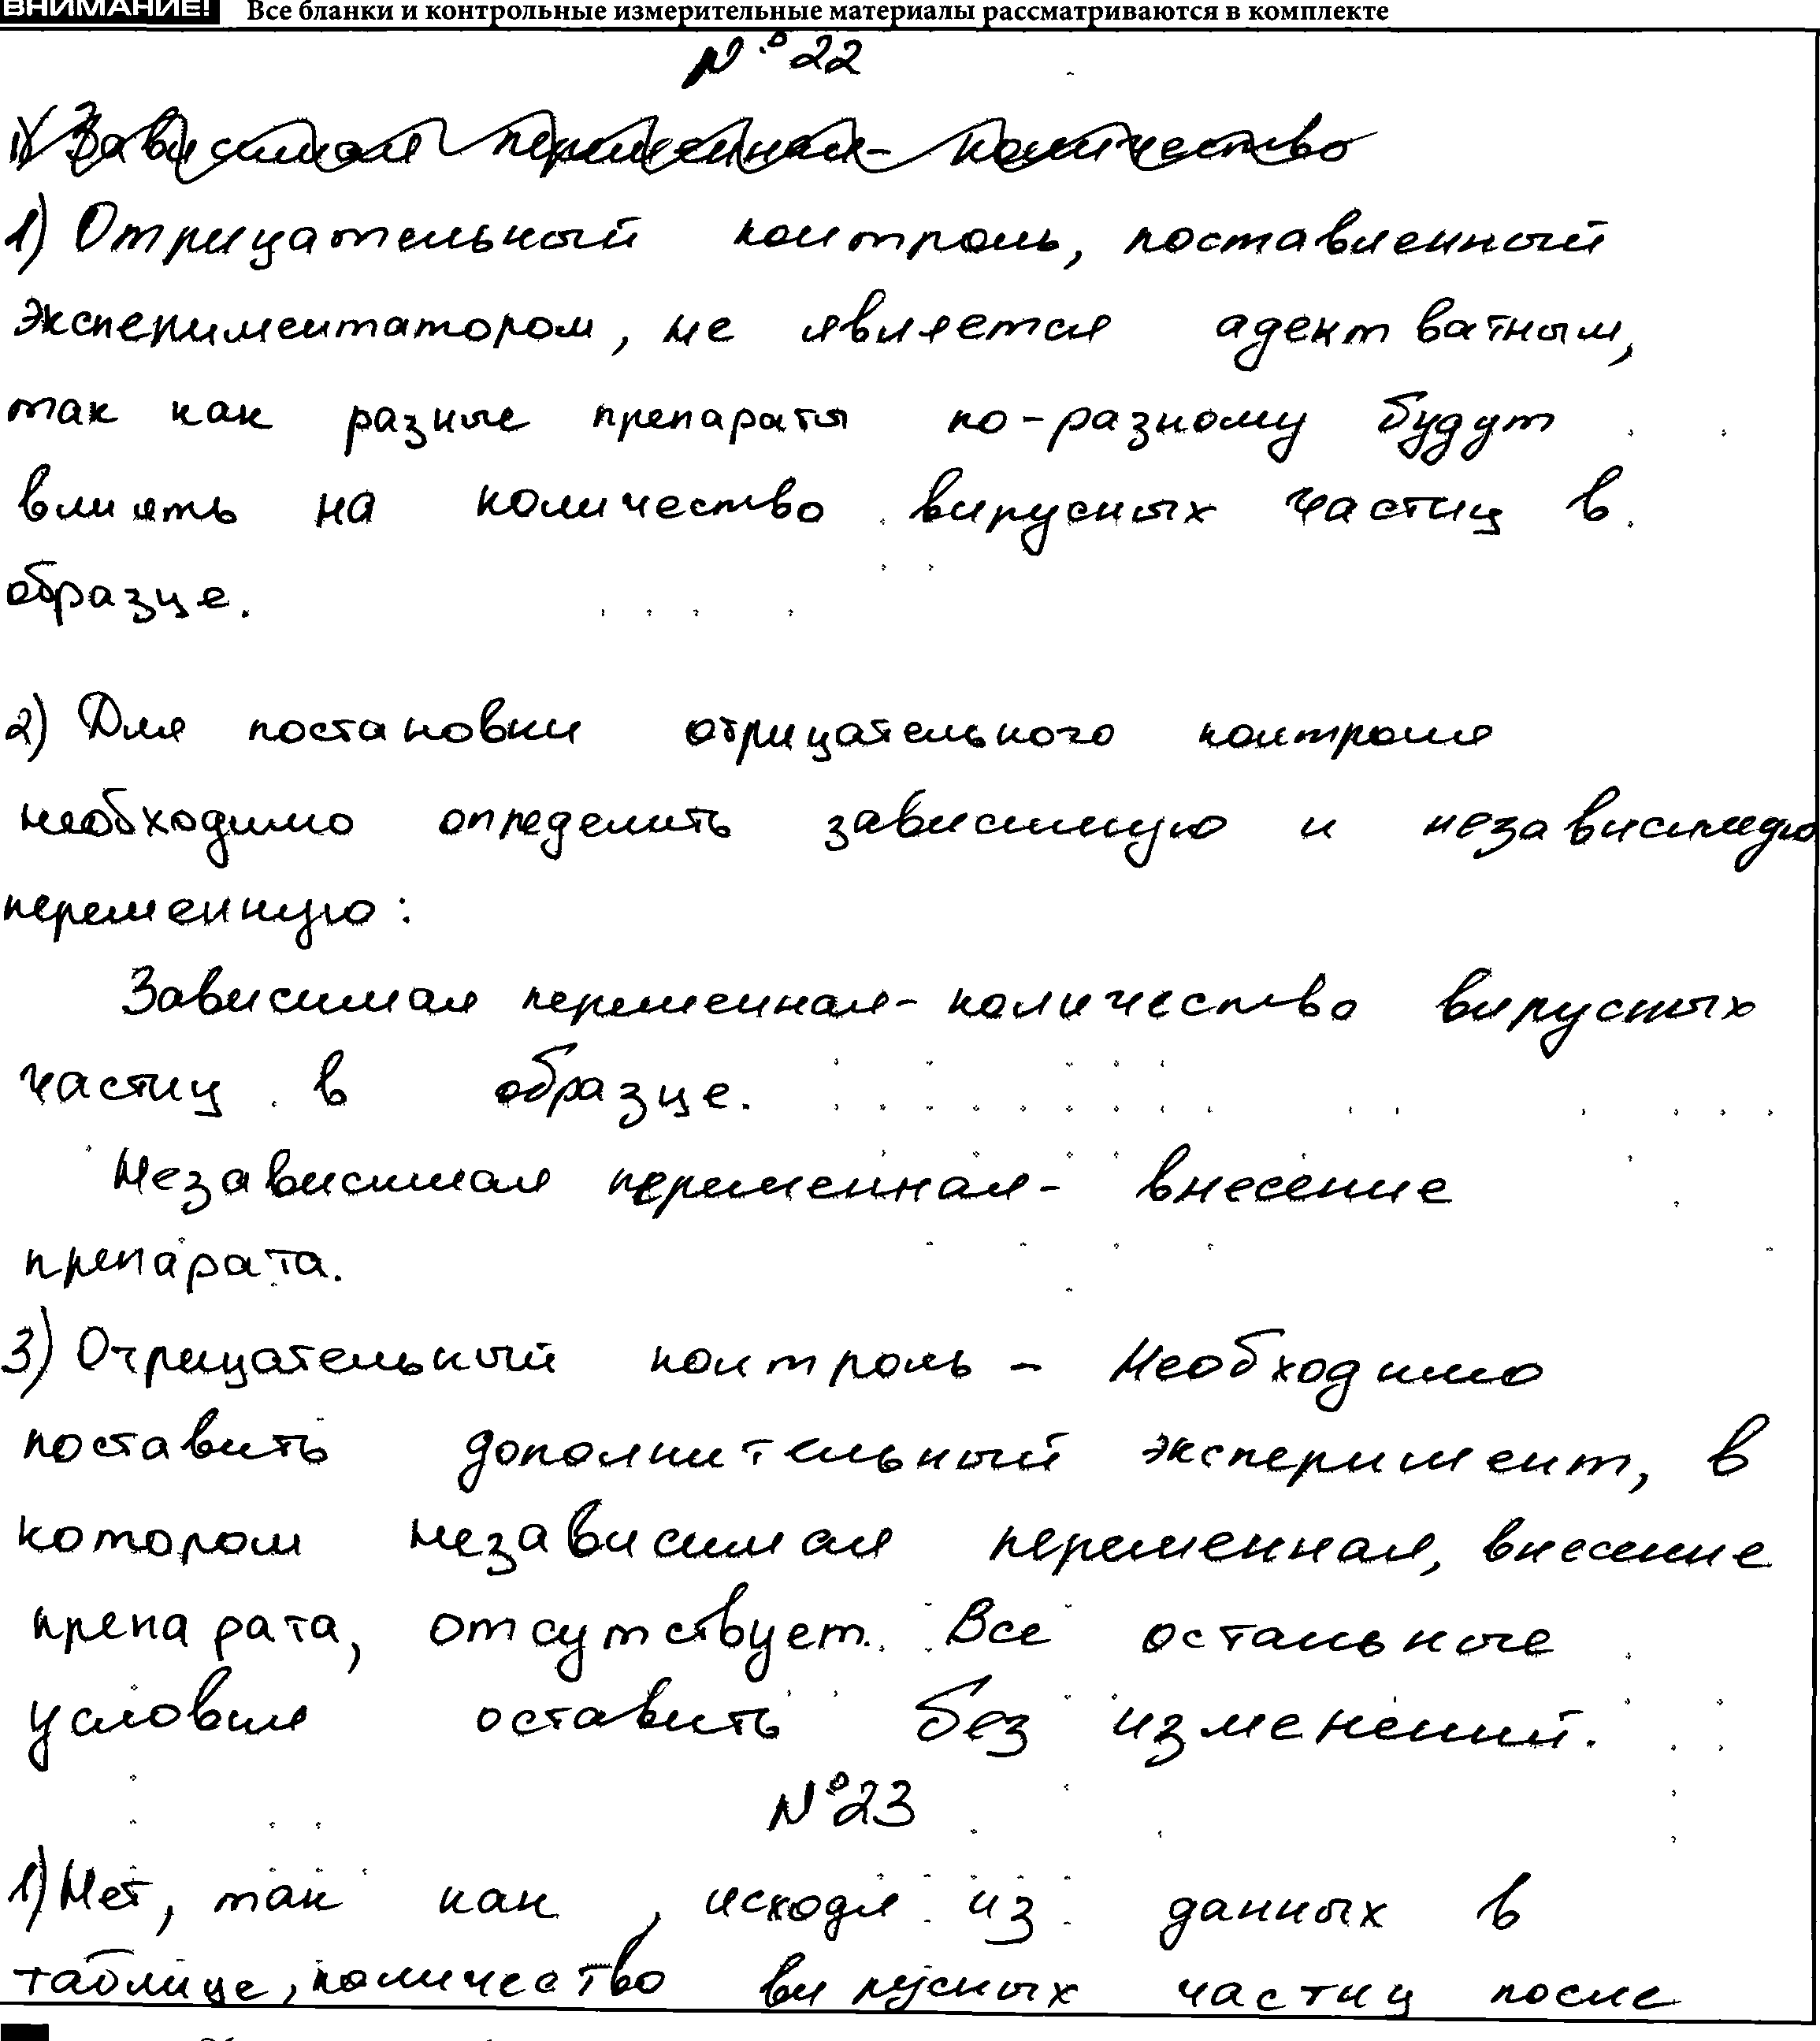 ВНИМАНИЕ! Все бланки и контрольные измерительные материалы рассматриваются в комплекте
№ 22
1) Зависимая переменная - количество
1) Отрицательный контроль, поставленный
экспериментатором, не является адектватным,
так как разные препараты по-разному будут
влиять на количество вирусных частиц в
образце.
2) Для постановки отрицательного контроля
необходимо определить зависимую и независимую
переменную:
Зависимая переменная - количество вирусных
частиц в образце.
Независимая переменная - внесение
препарата.
3) Отрицательный контроль - Необходимо
поставить дополнительный эксперимент, в
котором независимая переменная, внесение
препарата, отсутствует. Все остальные
условия оставить без изменений.
№23
1) Нет, так как, исходя из данных в
таблице, количество вирусных частиц после